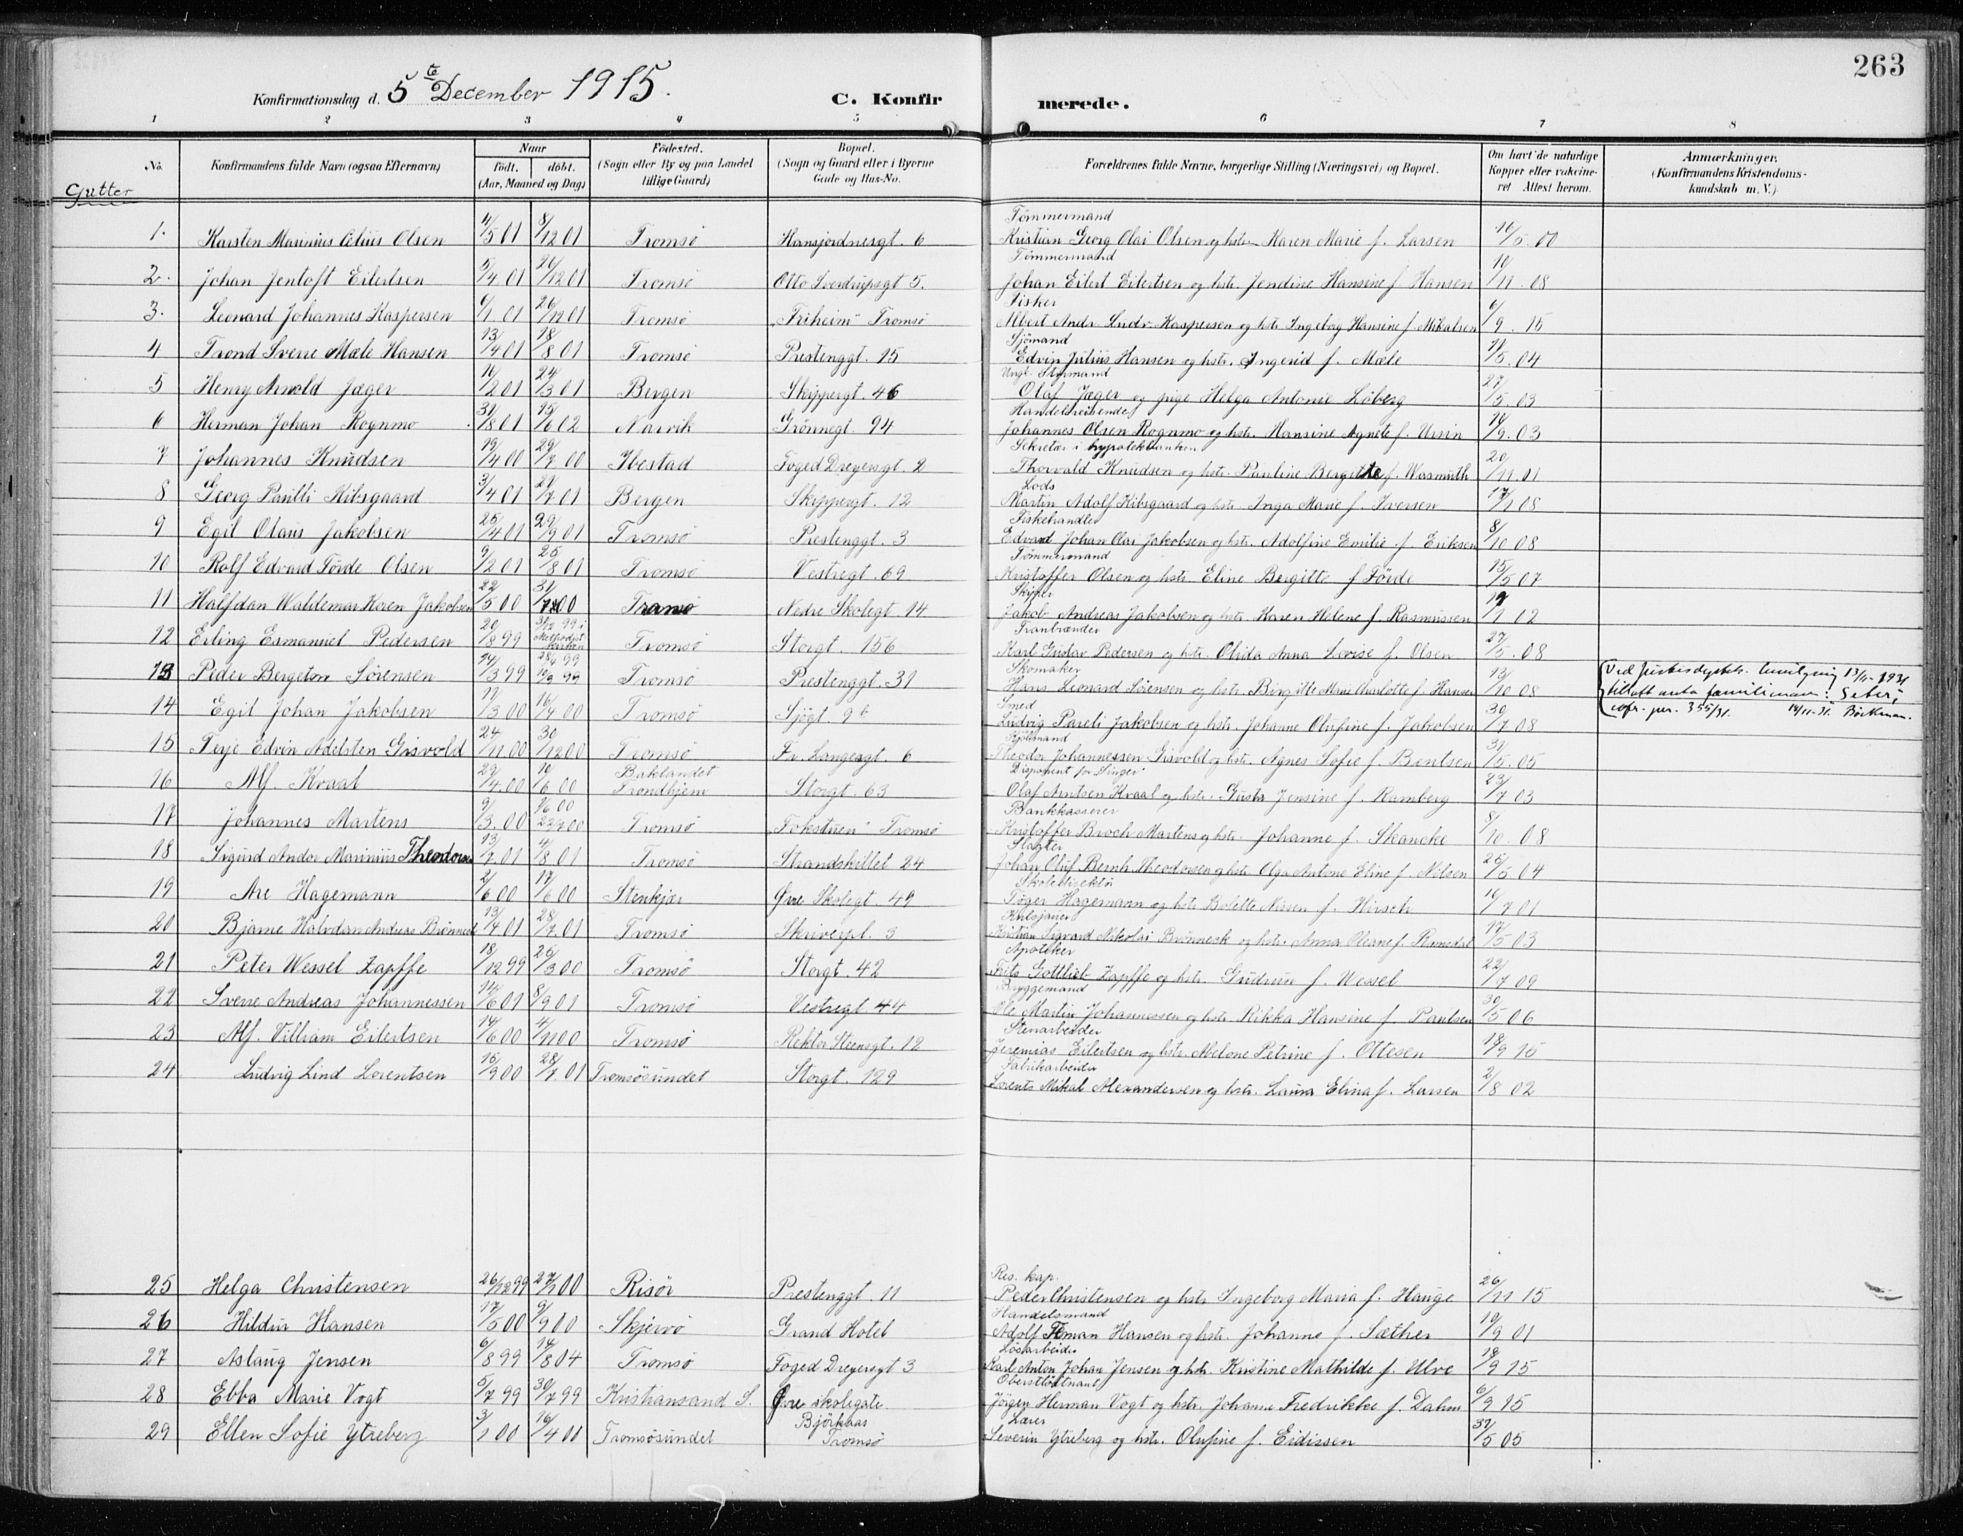 263
Konfirmationsdag d. 5te December 1915.
C. Konfirmerede.
1 2 3 4 5 6 7 8
No.
Konfirmandens fulde Navn (ogsaa Efternavn)
Naar
født. døbt.
(Aar, Maaned og Dag)
Fødested.
(Sogn eller By og paa Landet tillige Gaard)
Bopæl.
(Sogn og Gaard eller i Byerne Gade og Hus-No.
Forældrenes fulde Navne, borgerlige Stilling (Næringsvei) og Bopæl.
Om havt de naturlige Kopper eller vaccineret. Attest herom.
Anmærkninger.
(Konfirmandens Kristendomskundskab m. V.)
Gutter
Tømmermand
1. Karsten Marinius Olsen 4/5 01 8/12 01 Tromsø Hansjordnesgt. 6 Kristian Georg Olai Olsen og hstr. Karen Marie f. Larsen 16/5. 00
Tømmermand
2. Johan Jentoft Eilertsen 5/4 01 26/12 01 Tromsø Otto Sverdrupsgt 5. Johan Eilert Eilertsen og hstr. Jendine Hansine f. Hansen 10/11. 08
Fisker
3. Leonard Johannes Kaspersen 6/1. 01 26/12 01 Tromsø "Friheim" Tromsø Albert Andr. Ludv. Kaspersen og hstr. Ingeborg Hansine f. Mikalsen 6/9. 15
Sjømand
4 Trond Sverre Mæle Hansen 13/4 01 18/8 01 Tromsø Prestenggt. 15 Edvin Julius Hansen og hstr. Ingerid f. Mæle 11/5. 04
Ungk. Styrmand
5 Henry Arnold Jæger 16/2 01 24/3 01 Bergen Skippergt. 46 Olaf Jæger og pige Helga Antonie Löberg 27/5. 03
Handelsreisende
6 Herman Johan Rognmo 31/8 01 15/6 02 Narvik Grønnegt. 94 Johannes Olsen Rognmo og hstr. Hansine Agnete f. Ursin 16/9. 03
Sekretær i hypotekbanken
7 Johannes Knudsen 19/4 00 29/7 00 Ibestad Foged Dreyersgt. 2 Thorvald Knudsen og hstr. Pauline Bergitte f. Wasmuth 20/11. 01
Lods
8 Georg Paulli Kibsgaard 3/4 01 21/7 01 Bergen Skippergt. 12 Martin Adolf Kibsgaard og hstr. Inga Marie f. Iversen 17/1 08
Fiskehandler
9 Egil Olaus Jakobsen 25/4 01 29/9 01 Tromsø Prestenggt. 3 Edvard Johan Olai Jakobsen og hstr. Adolfine Emilie f. Eriksen 8/10 08
Tømmermand
10 Rolf Edvard Förde Olsen 9/2 01 25/8 01 Tromsø Vestregt. 69 Kristoffer Olsen og hstr. Eline Bergitte f. Förde 15/5 07
Skipper
11 Halfdan Waldemar Koren Jakobsen 22/5 00 31/12 00 Tromsø Nedre Skolegt 14 Jakob Andreas Jakobsen og hstr. Karen Helene f. Rasmussen 19/9 02
Tranbrænder
12 Erling Esmanuel Pedersen 20/8 99 31/12 99 i Methodistkirken Tromsø Storgt. 156 Karl Gustav Pedersen og hstr. Olvida Anna Lovise f. Olsen 27/5. 08
Skomaker
13 Peder Bergeton Sörensen 24/3 99 Tromsø Prestenggt. 31 Hans Leonard Sörensen og hstr. Birgitte Marie Charlotte f. Hansen 13/10 08
1931 tillatt anta familienavn: cfr. 355/31. 14/11-31.
Smed
14 Egil Johan Jakobsen 17/3 00 16/4 00 Tromsø Sjøgt. 96 Ludvig Pareli Jakobsen og hstr. Johanne Olufine f. Jakobsen 30/7 08
15 Terje Edvin Adelsten Gisvold 24/11 00 30/12 00 Tromsø Fr. Langesgt. 6 Theodor Johannessen Gisvold og hstr. Agnes Sofie f. Bentsen 31/5. 05
Disponent for "Singer"
16 Alf Kvaal 29/4. 00 10/6 00 Baklandet Trondhjem Storgt. 63 Olaf Arntsen Kvaal og hstr. Gusta Jensine f. Ramberg 23/7 03
Bankkasserer
17 Johannes Martens 9/3. 00 Tromsø "Fokstuen" Tromsø Kristoffer Broch Martens og hstr. Johanne f. Skancke 8/10. 08
Slagter
18 Sigurd Andor Marinius Theodorsen 13/7 01 4/8 01 Tromsø Strandskillet 24 Johan Oluf Bernh. Theodorsen og hstr. Olga Antine Eline f. Nilsen 26/5 04
Skoledirektør
19 Are Hagemann 2/6 00 17/6 00 Stenkjær Øvre Skolegt 49 Töger Hagemann og hstr. Bolette Nissen f. Hirsch 16/7 01
20 Bjarne Halvdan Andreas Brönneck 13/4 01 28/7 01 Tromsø Skriverpl. 3 Kristian Sigvard Nikolai Brönneck og hstr. Anna Oleane f. 17/5 03
Apoteker
21 Peter Wessel Zapffe 18/12 99 26/3 00 Tromsø Storgt. 42 Frits Gottlieb Zapffe og hstr. Gudrun f. Wessel 22/7 09
Bryggemand
22 Sverre Andreas Johannessen 14/6 01 8/9 01 Tromsø Vestregt 44 Ole Martin Johannessen og hstr. Rikka Hansine f. Paulsen 30/5 06
Stenarbeider
23 Alf Villiam Eilertsen 14/6 00 4/11 00 Tromsø Rektor Steensgt. 12 Jeremias Eilertsen og hstr. Melone Petrine f. Ottesen 18/9 15
Fabrikarbeider
24 Ludvig Lind Lorentsen 15/9 00 28/7 01 Tromsøsundet Storgt. 129 Lorents Mikal Alexandersen og hstr. Laura Elina f. Larsen 2/8 02
Res. kap.
25 Helga Christensen 26/12 99 27/1 00 Risør Prestenggt. 11 Peder Christensen og hstr Ingeborg Maria f. Hauge 26/11 15
Handelsmand
26 Hildur Hansen 17/5 00 9/9 00 Skjervø Grand Hotel Adolf Hansen og hstr. Johanne f. Sæther 19/9 01
Løsarbeider
27 Aslaug Jensen 6/8 99 14/8 04 Tromsø Foged Dreyersgt 3 Karl Anton Johan Jensen og hstr. Kristine Mathilde f. Ulve 18/9 15
Oberstløitnant
28 Ebba Marie Vogt 5/7 99 30/7 99 Kristiansand S. Øvre skolegate Jörgen Herman Vogt og hstr. Johanne Fredrikke f. Dahm 6/9 15
Lærer
29 Ellen Sofie Ytreberg 3/1 00 16/4 00 Tromsøsundet Björkaas Tromsø Severin Ytreberg og hstr. Olufine f. Eidissen 31/5 05